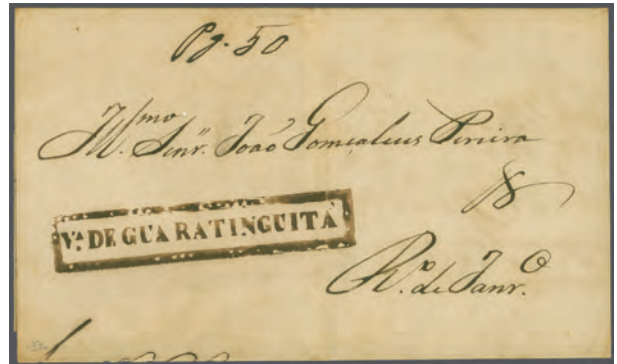 Pg. 50
Illmo Senr. João Gomçalvus Pereira
Va. DE GUARATINGUITÁ
Ro. de Janro.